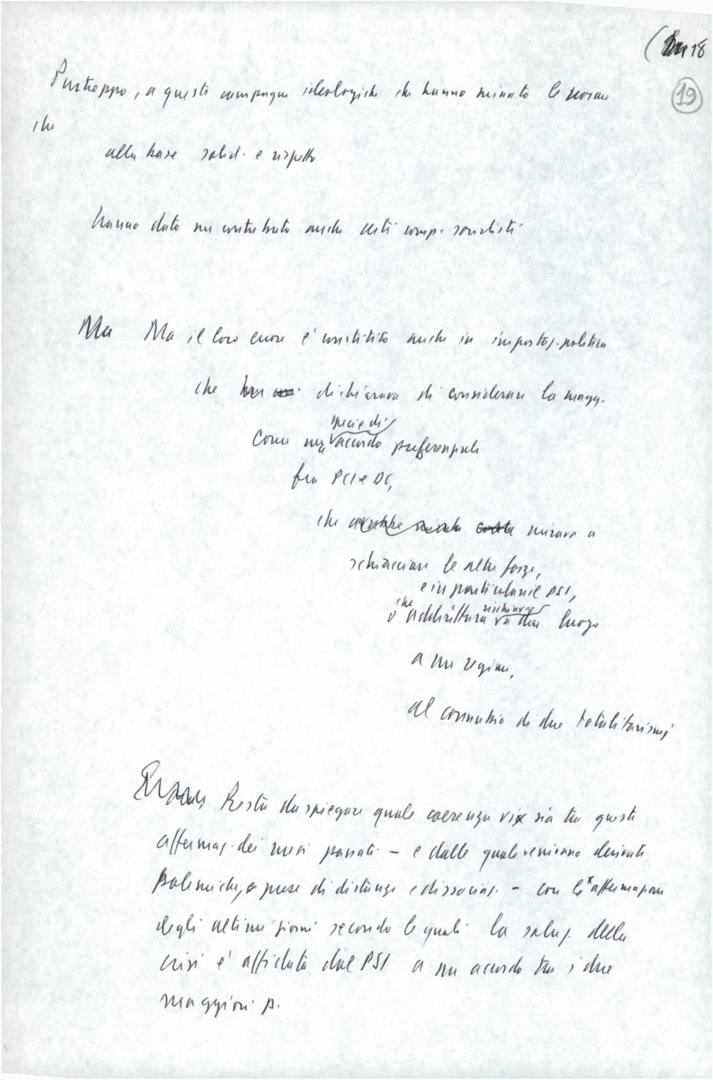 18
19
Purtroppo, a queste campagne ideologiche che hanno minato le
che
alla base solid. e rispetto
hanno dato un contributo anche certi comp. socialisti
Ma Ma il loro errore è consistito anche in impostaz. politica
che dichiarava di considerare la magg.
specie di
come una accordo preferenziale
fra PCI e DC,
che mirava a
schiacciare le altre forze,
e in particolare il PSI,
che
o addirittura va dar luogo
a un regime,
al connubio di due totalitarismi
Resta da spiegare quale coerenza vi sia tra queste
affermaz. dei mesi passati – e dalle quali venivano derivate
polemiche, prese di distanze e dissociaz. – con le affermazioni
degli ultimi giorni secondo le quali la soluz. della
crisi è affidata dal PSI a un accordo tra i due
maggiori p.